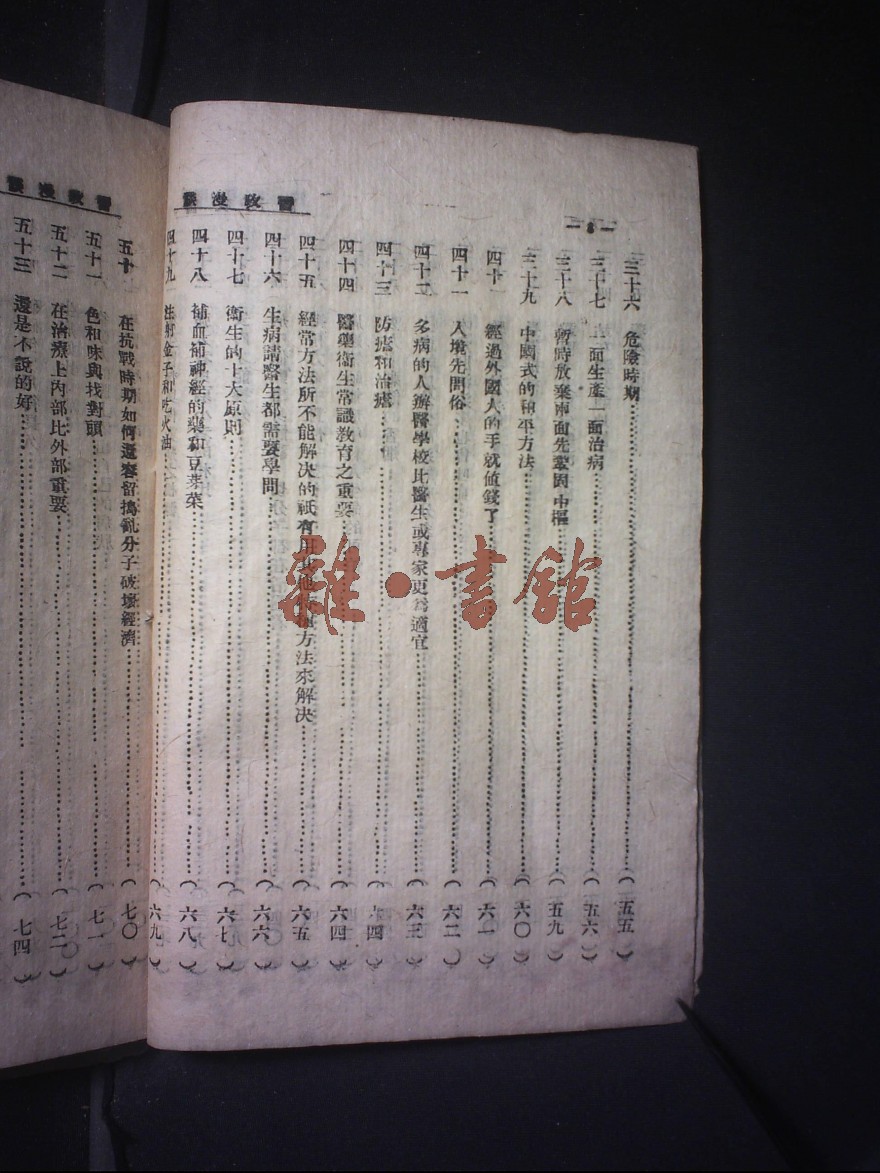 — 3 —
三十六 危險時期……(五五)
三十七 一面生產一面治病……(五六)
三十八 暫時放棄兩面先鞏固中樞……(五九)
三十九 中國式的和平方法……(六〇)
四十 經過外國人的手就値錢了……(六一)
四十一 入境先問俗……(六二)
四十二 多病的人辦醫學校比醫生或專家更爲適宜……(六三)
四十三 防瘧和治瘧……(六四)
四十四 醫藥衞生常識敎育之重要……(六四)
四十五 經常方法所不能解決的祇有用其他方法來解決……(六五)
四十六 生病請醫生都需要學問……(六六)
四十七 衞生的十大原則……(六七)
四十八 補血補神經的藥和豆芽菜……(六八)
四十九 注射金子和吃火油……(六九)
醫政漫談
五十 在抗戰時期如何還容留搗亂分子破壞經濟……(七〇)
五十一 色和味與找對頭……(七一)
五十二 在治療上內部比外部重要……(七二)
五十三 還是不說的好……(七四)
醫政漫談
雜·書館